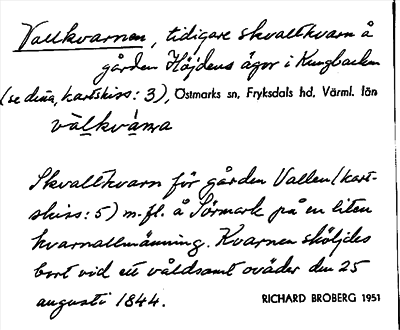 Vallkvarnen, tidigare skvaltkvarn å
gården Höjdens ägor i Kungbacken
(se dena, kartskiss: 3), Östmarks sn, Fryksdals hd, Värml. län
Skvaltkvarn för gården Vallen (kart-
skiss: 5) m. fl. å Sörmark på en liten
kvarnallmänning. Kvarnen sköljdes
bort vid ett våldsamt oväder den 25
augusti 1844. RICHARD BROBERG 1951